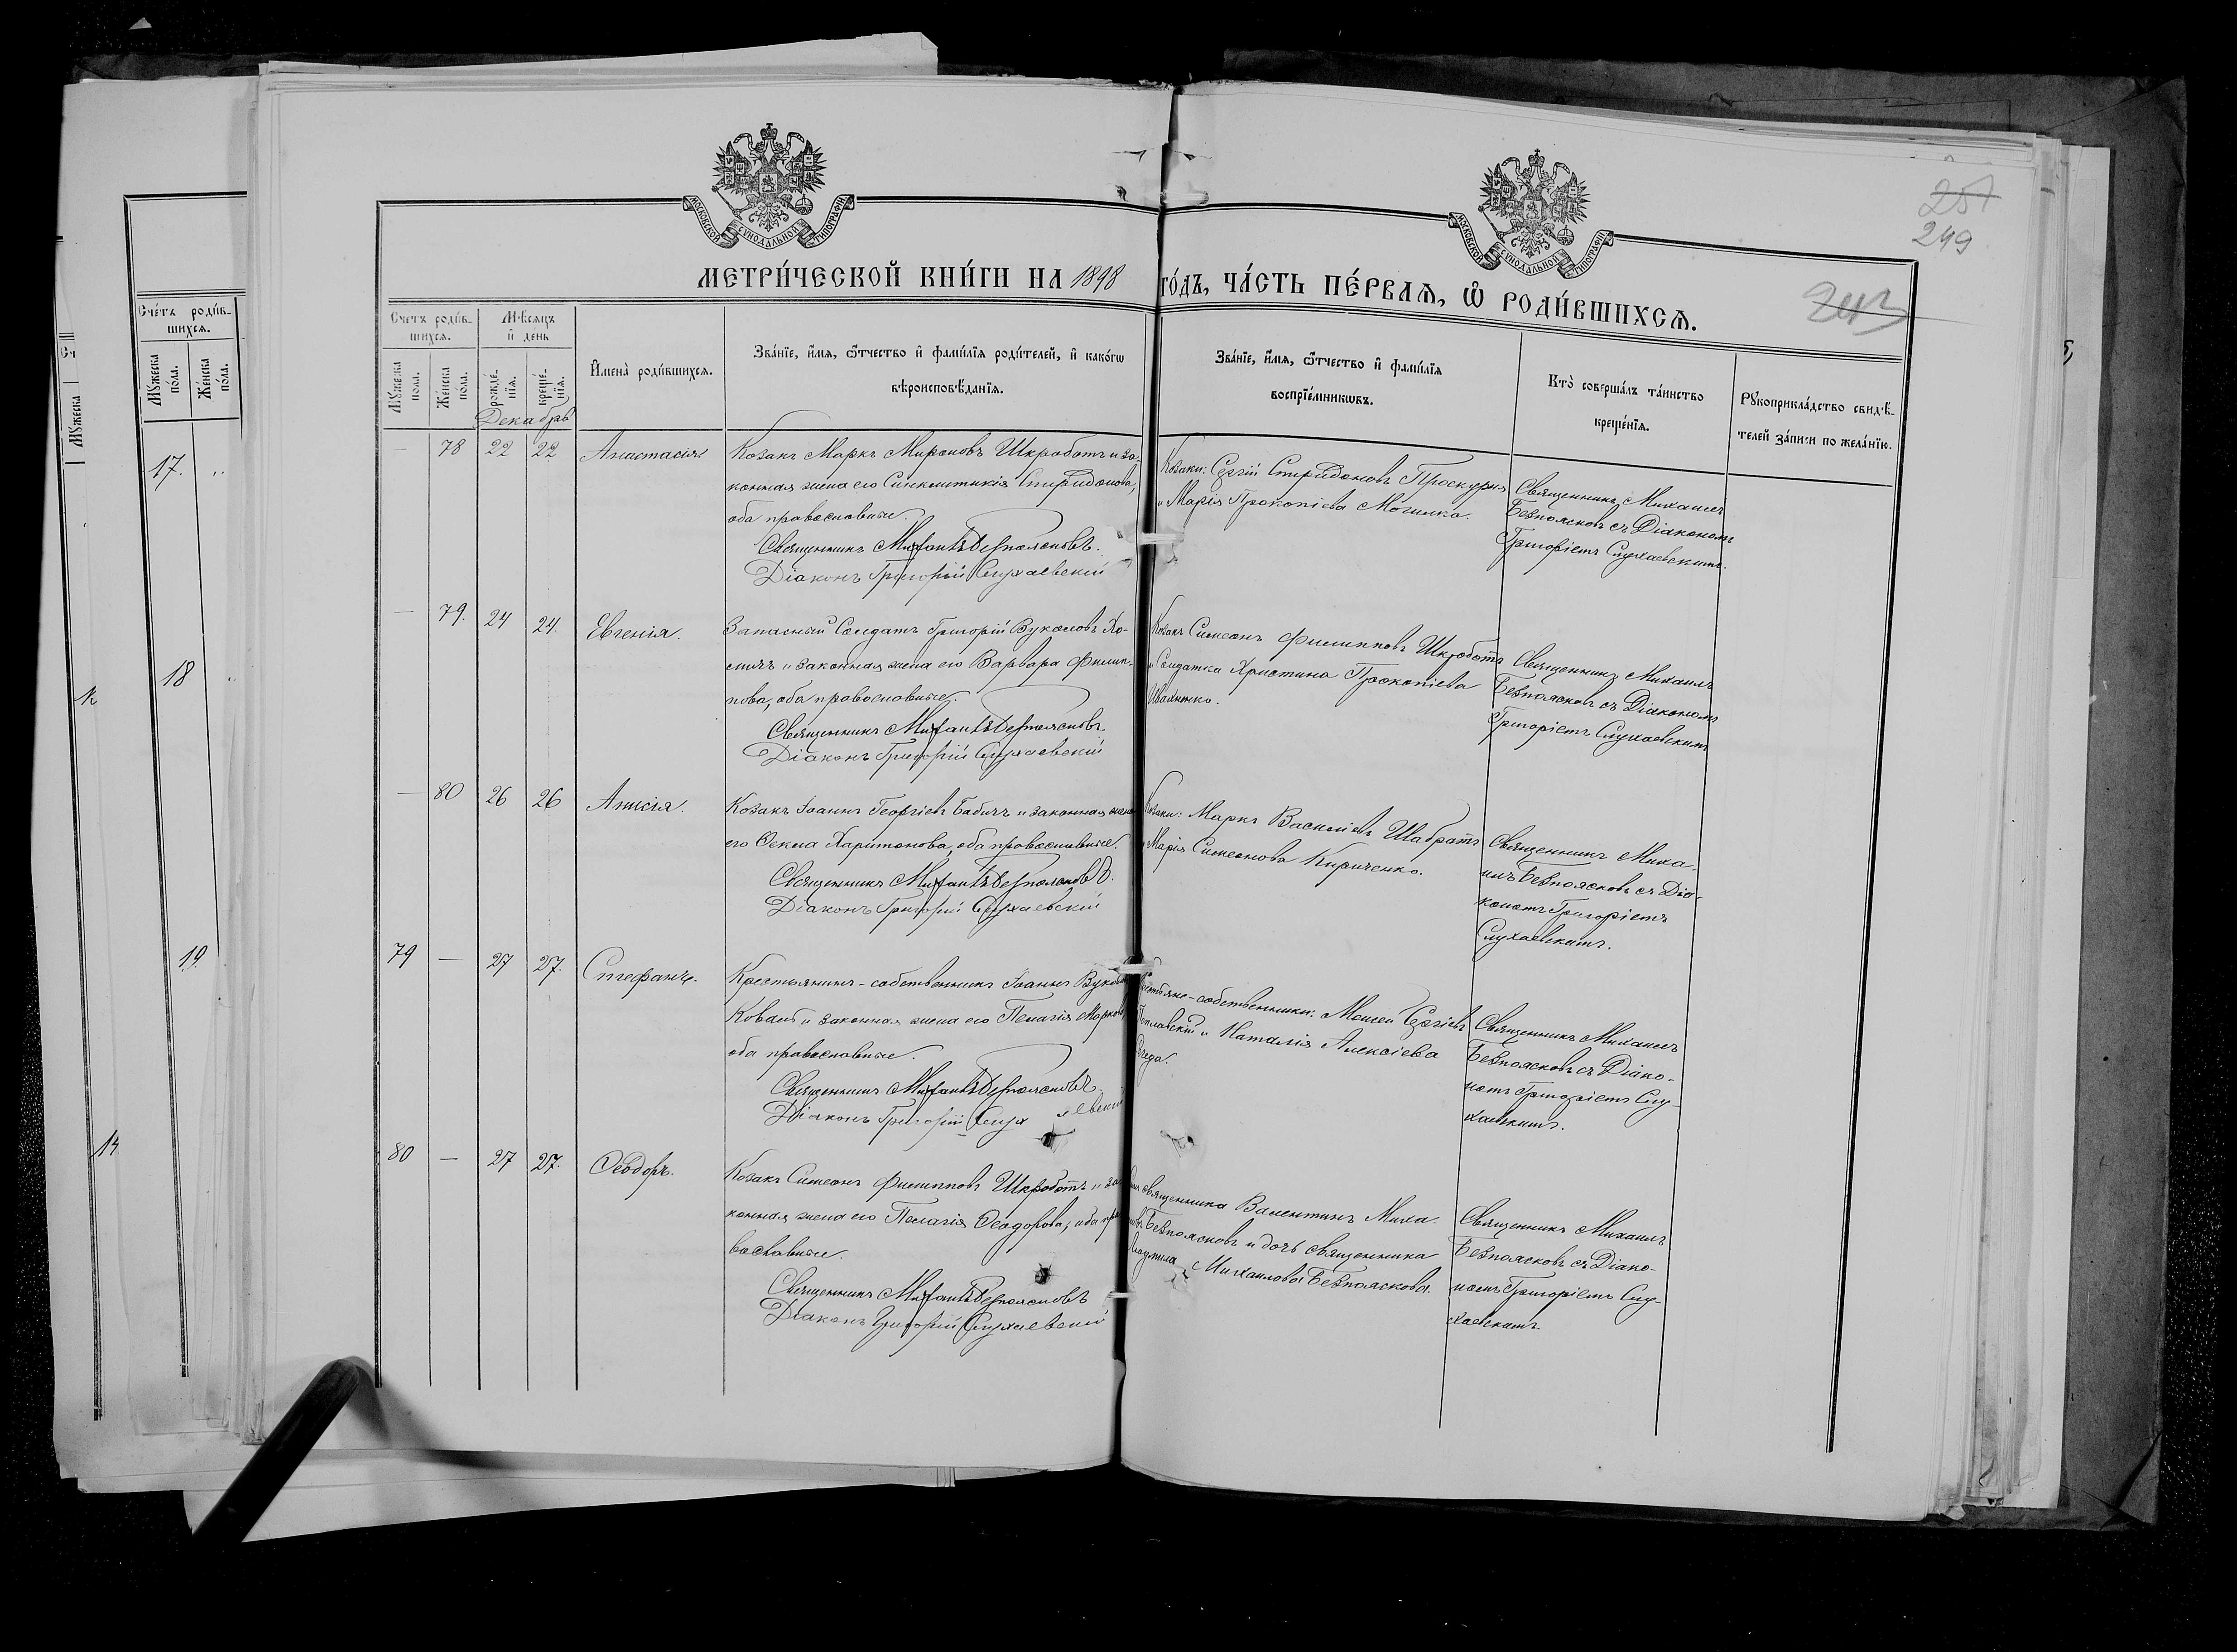 МОСКОВСКОЙ СУНОДАЛЬНОЙ ТИПОГРАФІИ
МОСКОВСКОЙ СУНОДАЛЬНОЙ ТИПОГРАФІИ
251
249
243
МЕТРИ́ЧЕСКОЙ КНИ́ГИ НА 1898
ГО́ДЪ, ЧА́СТЬ ПЕ́РВАѦ, Ѡ РОДИ́ВШИХСѦ.
Счетъ роди́в-
шихсѧ.
Мѣсѧцъ
и҆ де́нь
Мꙋжеска
по́ла.
Же́нска
по́ла.
рожде́-
нїѧ.
креще́-
нїѧ.
И҆мена̀ роди́вшихсѧ.
Зва́нїе, и҆́мѧ, ѻ҆́тчество и҆ фамі́лїѧ роди́телей, и҆ како́гѡ
вѣроисповѣ́данїѧ.
Зва́нїе, и҆́мѧ, ѻ҆́тчество и҆ фамі́лїѧ
воспрїе́мникѡвъ.
Кто̀ соверша́лъ та́инство
креще́нїѧ.
Рꙋкоприкла́дство свидѣ́-
телей за́писи по жела́нїю.
Счетъ роди́в-
шихсѧ.
Мꙋжеска
по́ла.
Же́нска
по́ла.
Мꙋжеска
17.
18
19.
14
Декабрь
— 78 22 22 Анастасія
Козакъ Маркъ Мироновъ Шкроботъ и за-
конная жена его Синклитикія Спиридонова,
оба православные.
Священникъ Михаилъ Безпоясковъ.
Діаконъ Григорій Слухаевскій
Козаки: Сергій Спиридоновъ Проскурня
и Марія Прокопіева Могилка.
Священникъ Михаилъ
Безпоясковъ съ Діакономъ
Григоріемъ Слухаевскимъ.
— 79. 24 24. Евгенія.
Запасный Солдатъ Григорій Вуколовъ Хо-
мичъ и законная жена его Варвара Филип-
пова, оба православные.
Священникъ Михаилъ Безпоясковъ.
Діаконъ Григорій Слухаевскій
Козакъ Симеонъ Филипповъ Шкроботъ
и Солдатка Христина Прокопіева
Священникъ Михаилъ
Безпоясковъ съ Діакономъ
Григоріемъ Слухаевскимъ
— 80 26 26 Анисія.
Козакъ Іоаннъ Георгіевъ Бабичъ и законная жена
его Ѳекла Харитонова, оба православные.
Священникъ Михаилъ Безпоясковъ.
Діаконъ Григорій Слухаевскій
Козаки: Маркъ Василіевъ Шабратъ
и Марія Симеонова Кириченко.
Священникъ Миха-
илъ Безпоясковъ съ Діа-
кономъ Григоріемъ
Слухаевскимъ.
79 — 27 27. Стефанъ.
Крестьянинъ-собственникъ Іоаннъ Вуколовъ
Коваль и законная жена его Пелагія Маркова,
оба православные.
Священникъ Михаилъ Безпоясковъ.
Діаконъ Григорій Слухаевскій
Крестьяне-собственники: Моисей Сергіевъ
и Наталія Алексіева
Священникъ Михаилъ
Безпоясковъ съ Діако-
номъ Григоріемъ Слу-
хаевскимъ.
80 — 27 27. Ѳеодоръ.
Козакъ Симеонъ Филипповъ Шкроботъ и за-
конная жена его Пелагія Ѳеодорова, оба пра-
вославные.
Священникъ Михаилъ Безпоясковъ
Діаконъ Григорій Слухаевскій
Сынъ священника Валентинъ Миха-
иловъ Безпоясковъ и дочь священника
Людмила Михаилова Безпояскова.
Священникъ Михаилъ
Безпоясковъ съ Діако-
номъ Григоріемъ Слу-
хаевскимъ.